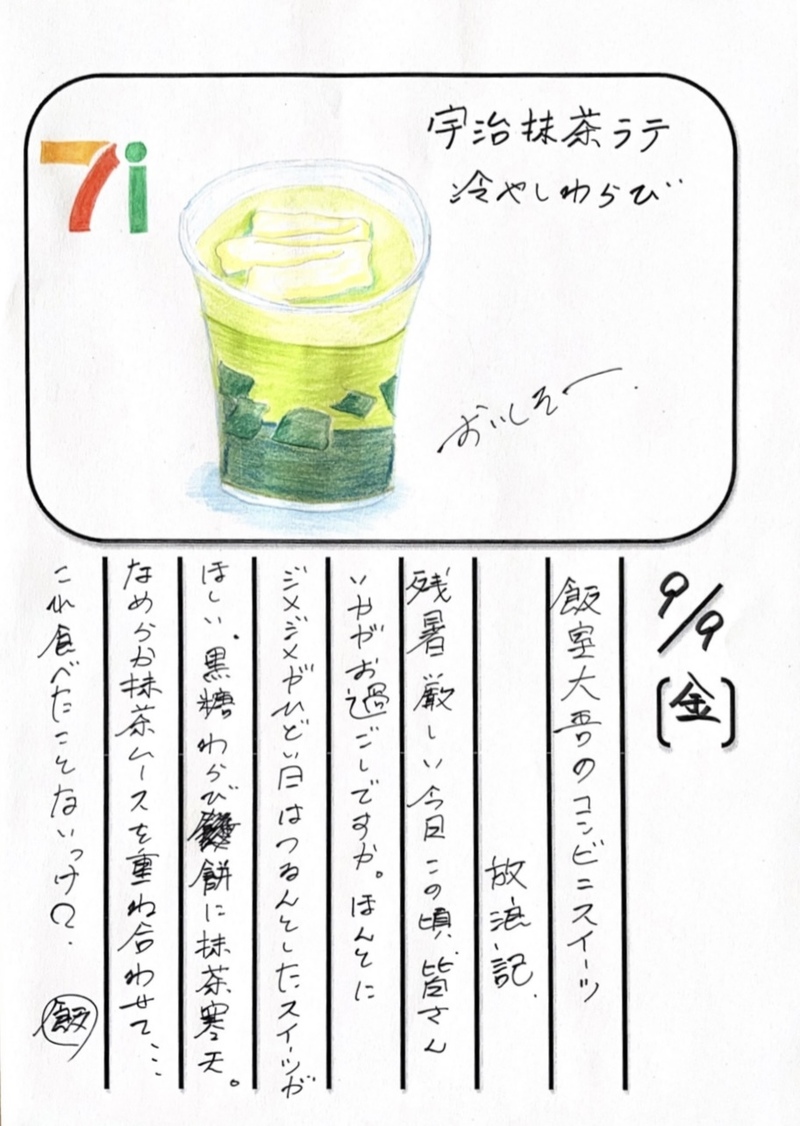 7i
宇治抹茶ラテ
冷やしわらび
おいしそー
9/9
[金]
飯室大吾のコンビニスイーツ
放浪記.
残暑厳しい今日この頃、皆さん
いかがお過ごしですか。ほんとに
ジメジメがひどい日はつるんとしたスイーツが
ほしい。黒糖わらび餅に抹茶寒天。
なめらか抹茶ムースを重ね合わせて、…
これ食べたことないっけ?
飯